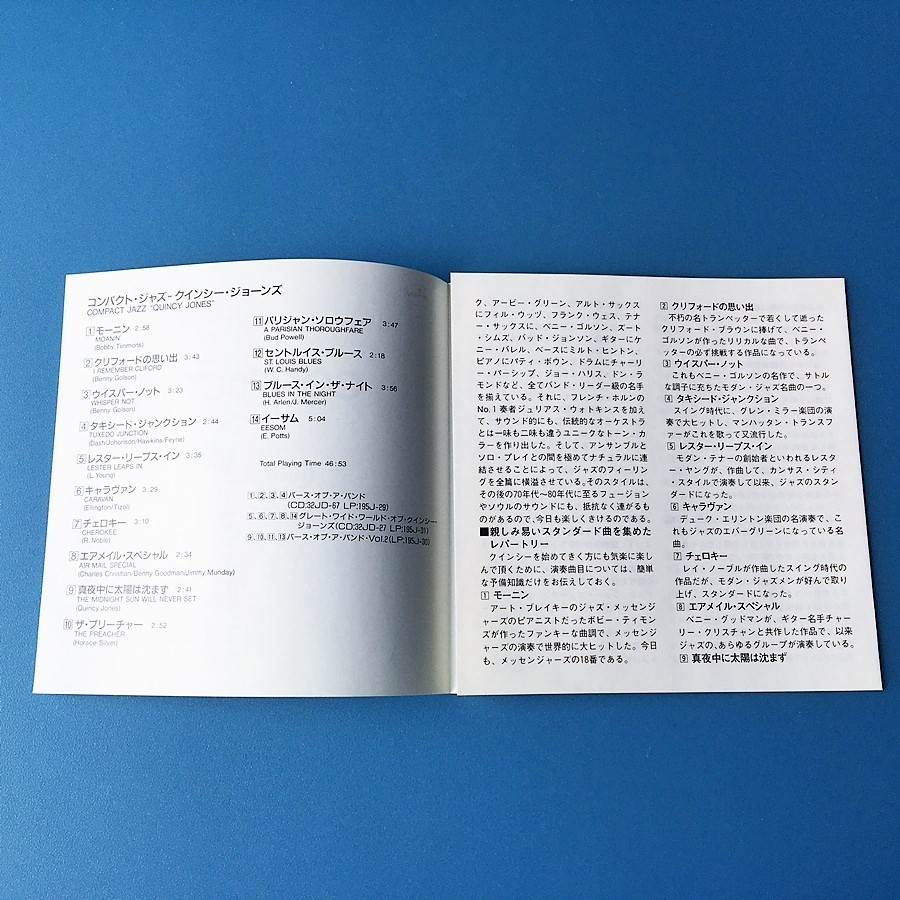 コンパクト・ジャズ－クインシー・ジョーンズ
COMPACT JAZZ "QUINCY JONES"
1 モーニン 2:58
MOANIN'
(Bobby Timmons)
2 クリフォードの思い出 3:43
I REMEMBER CLIFORD
(Benny Golson)
3 ウイスパー・ノット 3:23
WHISPER NOT
(Benny Golson)
4 タキシード・ジャンクション 2:44
TUXEDO JUNCTION
(Dash/Johonson/Hawkins/Feyne)
5 レスター・リープス・イン 3:35
LESTER LEAPS IN
(L.Young)
6 キャラヴァン 3:29
CARAVAN
(Ellington/Tizol)
7 チェロキー 3:10
CHEROKEE
(R.Noble)
8 エアメイル・スペシャル 2:34
AIR MAIL SPECIAL
(Charles Christian/Benny Goodman/Jimmy Munday)
9 真夜中に太陽は沈まず 2:41
THE MIDNIGHT SUN WILL NEVER SET
(Quincy Jones)
10 ザ・プリーチャー 2:52
THE PREACHER
(Horace Silver)
11 パリジャン・ソロウフェア 3:47
A PARISIAN THOROUGHFARE
(Bud Powell)
12 セントルイス・ブルース 2:18
ST. LOUIS BLUES
(W.C. Handy)
13 ブルース・イン・ザ・ナイト 3:56
BLUES IN THE NIGHT
(H. Arlen/J. Mercer)
14 イーサム 5:04
EESOM
(E. Potts)
Total Playing Time 46:53
1、2、3、4 バース・オブ・ア・バンド
(CD:32JD-67 LP:195J-29)
5、6、7、8、14 グレート・ワイド・ワールド・オブ・クインシー・
ジョーンズ(CD:32JD-27 LP:195J-31)
9、10、11、13 バース・オブ・ア・バンド・Vol.2(LP:195J-30)
ク、アービー・グリーン、アルト・サックス
にフィル・ウッツ、フランク・ウェス、テナ
ー・サックスに、ベニー・ゴルソン、ズート
・シムズ、バッド・ジョンソン、ギターにケ
ニー・バレル、ベースにミルト・ヒントン、
ピアノにパティ・ボウン、ドラムにチャーリ
ー・パーシップ、ジョー・ハリス、ドン・ラ
モンドなど、全てバンド・リーダー級の名手
を揃えている。それに、フレンチ・ホルンの
No.1 奏者ジュリアス・ウォトキンスを加え
て、サウンド的にも、伝統的なオーケストラ
とは一味も二味も違うユニークなトーン・カ
ラーを作り出した。そして、アンサンブルと
ソロ・プレイとの間を極めてナチュラルに連
結させることによって、ジャズのフィーリン
グを全篇に横溢させている。そのスタイルは、
その後の70年代～80年代に至るフュージョン
やソウルのサウンドにも、抵抗なく連がるも
のがあるので、今日も楽しくきけるのである。
■親しみ易いスタンダード曲を集めた
レパートリー
クインシーを始めてきく方にも気楽に楽し
んで頂くために、演奏曲目については、簡単
な予備知識だけをお伝えしておく。
1 モーニン
アート・ブレイキーのジャズ・メッセンジ
ャーズのピアニストだったボビー・ティモン
ズが作ったファンキーな曲調で、メッセンジ
ャーズの演奏で世界的に大ヒットした。今日
も、メッセンジャーズの18番である。
2 クリフォードの思い出
不朽の名トランペッターで若くして逝った
クリフォード・ブラウンに捧げて、ベニー・
ゴルソンが作ったリリカルな曲で、トランペ
ッターの必ず挑戦する作品になっている。
3 ウイスパー・ノット
これもベニー・ゴルソンの名作で、サトル
な調子に充ちたモダン・ジャズ名曲の一つ。
4 タキシード・ジャンクション
スイング時代に、グレン・ミラー楽団の演
奏で大ヒットし、マンハッタン・トランスフ
ァーがこれを歌って又流行した。
5 レスター・リープス・イン
モダン・テナーの創始者といわれるレスタ
ー・ヤングが、作曲して、カンサス・シティ
・スタイルで演奏して以来、ジャズのスタン
ダードになった。
6 キャラヴァン
デューク・エリントン楽団の名演奏で、こ
れもジャズのエバーグリーンになっている名
曲。
7 チェロキー
レイ・ノーブルが作曲したスイング時代の
作品だが、モダン・ジャズメンが好んで取り
上げ、スタンダードになった。
8 エアメイル・スペシャル
ベニー・グッドマンが、ギター名手チャー
リー・クリスチャンと共作した作品で、以来
ジャズの、あらゆるグループが演奏している。
9 真夜中に太陽は沈まず